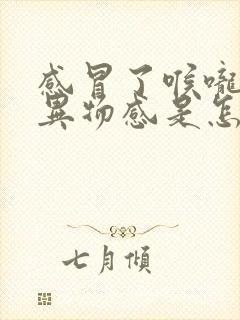 感冒了喉嚨
異物感是怎
七月傾